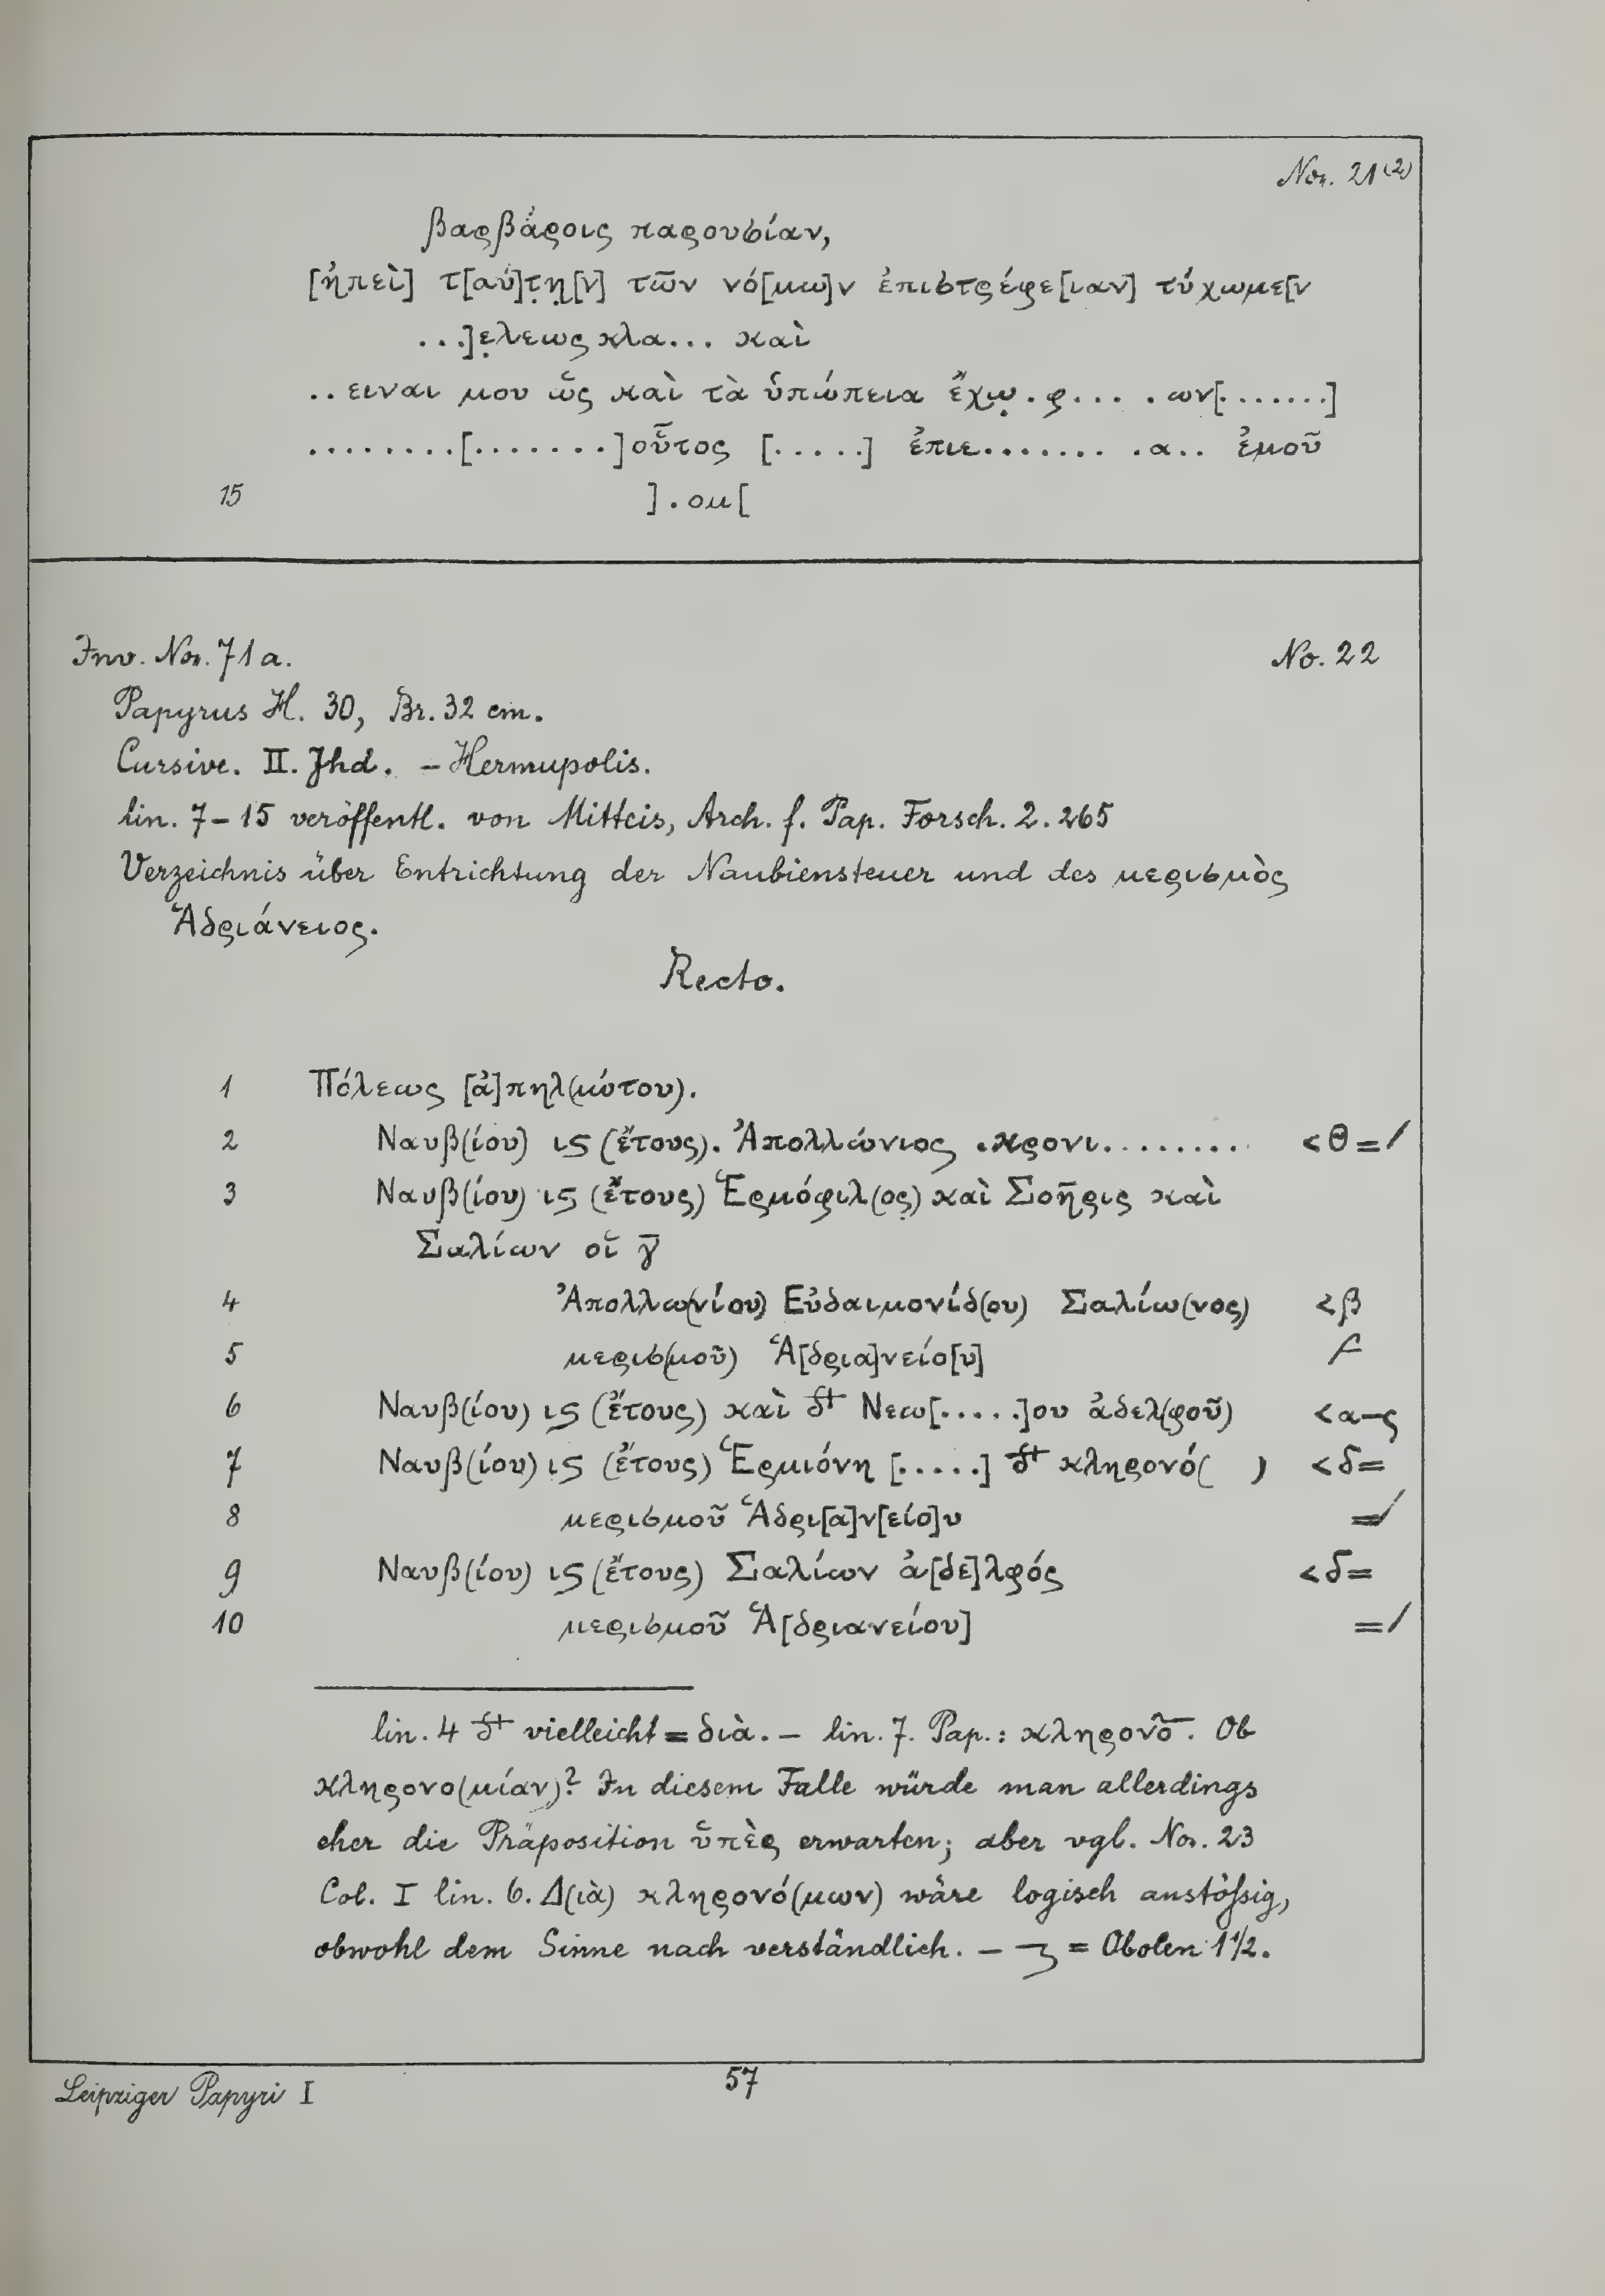 Nor. 21 (2)
βαρβάροις παρουσίαν,
[ἠπεὶ] τ[αύ]τη[ν] τῶν νό[μω]ν ἐπιστρέφε[ιαν] τύχωμε[ν
...]ελεως κλα... καὶ
..ειναι μου ὡς καὶ τὰ ὑπώπεια ἔχω.ρ... .ων[.......]
........[.......]οὗτος [.....] ἐπιε....... .α.. ἐμοῦ
15 ].ομ[
Inv. Nor. 71a. No. 22
Papyrus H. 30, Br. 32 cm.
Cursive. II. Jhd. – Hermupolis.
lin. 7–15 veröffentl. von Mitteis, Arch. f. Pap. Forsch. 2. 265
Verzeichnis über Entrichtung der Naubiensteuer und des μερισμὸς
Ἁδριάνειος.
Recto.
1 Πόλεως [ἀ]πηλ(ιώτου).
2 Ναυβ(ίου) ιϛ (ἔτους). Ἀπολλώνιος .κρονι......... <θ=/
3 Ναυβ(ίου) ιϛ (ἔτους) Ἑρμόφιλ(ος) καὶ Σοῆρις καὶ
Σαλίων οἱ γ̅
4 Ἀπολλω(νίου) Εὐδαιμονίδ(ου) Σαλίω(νος) <β
5 μερισ(μοῦ) Ἁ[δρια]νείο[υ] ƒ
6 Ναυβ(ίου) ιϛ (ἔτους) καὶ δ+ Νεω[.....]ου ἀδελ(φοῦ) <α–ς
7 Ναυβ(ίου) ιϛ (ἔτους) Ἑρμιόνη [.....] δ+ κληρονό( ) <δ=
8 μερισμοῦ Ἁδρι[α]ν[είο]υ =/
9 Ναυβ(ίου) ιϛ (ἔτους) Σαλίων ἀ[δε]λφός <δ=
10 μερισμοῦ Ἁ[δριανείου] =/
lin. 4 δ+ vielleicht = διὰ. – lin. 7. Pap.: κληρονο̅. Ob
κληρονο(μίαν)? In diesem Falle würde man allerdings
eher die Präposition ὑπὲρ erwarten; aber vgl. Nor. 23
Col. I lin. 6. Δ(ιὰ) κληρονό(μων) wäre logisch anstößig,
obwohl dem Sinne nach verständlich. – –ʒ = Obolen 1½.
57
Leipziger Papyri I